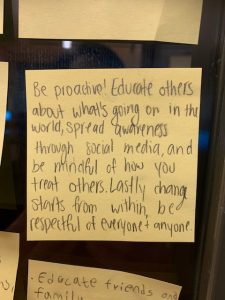 Be proactive! Educate others
about what's going on in the
world, spread awareness
through social media, and
be mindful of how you
treat others. Lastly change
starts from within, be
respectful of everyone + anyone.
. Educate friends and
family